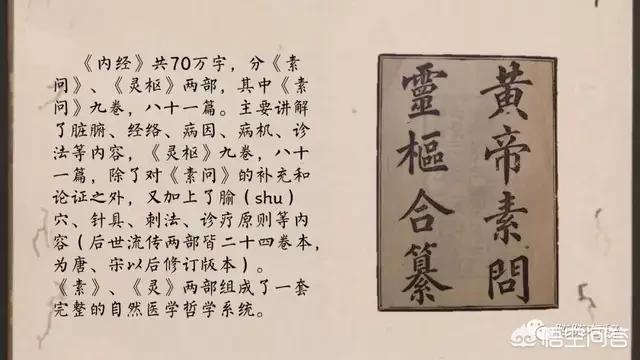 《内经》共70万字，分《素
问》、《灵枢》两部，其中《素
问》九卷，八十一篇。主要讲解
了脏腑、经络、病因、病机、诊
法等内容，《灵枢》九卷，八十
一篇，除了对《素问》的补充和
论证之外，又加上了腧（shu）
穴、针具、刺法、诊疗原则等内
容（后世流传两部皆二十四卷本，
为唐、宋以后修订版本）。
《素》、《灵》两部组成了一套
完整的自然医学哲学系统。
黄帝素問
靈樞合纂
悟空问答